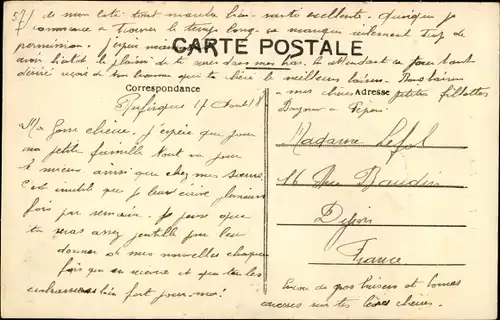 de mon coté tout marche bien santé excellente. Quoique je
commence à trouver le temps long. ça manque réellement trop de
permission.
CARTE POSTALE
avoir bientôt le plaisir de te dans mes bras. En attendant ce jour tant
désiré reçois de ton homme qui te les meilleurs baisers.
Correspondance
Adresse
à mes chères petites fillottes
Bonjour à Pépère.
Rufisque 17 Août 18
Ma Gosse chérie. J'espère que pour
ma petite famille tout va pour
le mieux ainsi que chez mes
C'est inutile que je leur écrive plusieurs
fois par semaine. Je pense que
tu es assez gentille pour leur
donner de mes nouvelles chaque
fois que tu en reçois et que tu les
embrasses bien fort pour moi.
Madame Lefol
16 Rue Baudin
Dijon
France
Encore de gros baisers et bonnes
caresses sur tes lèvres chéries.